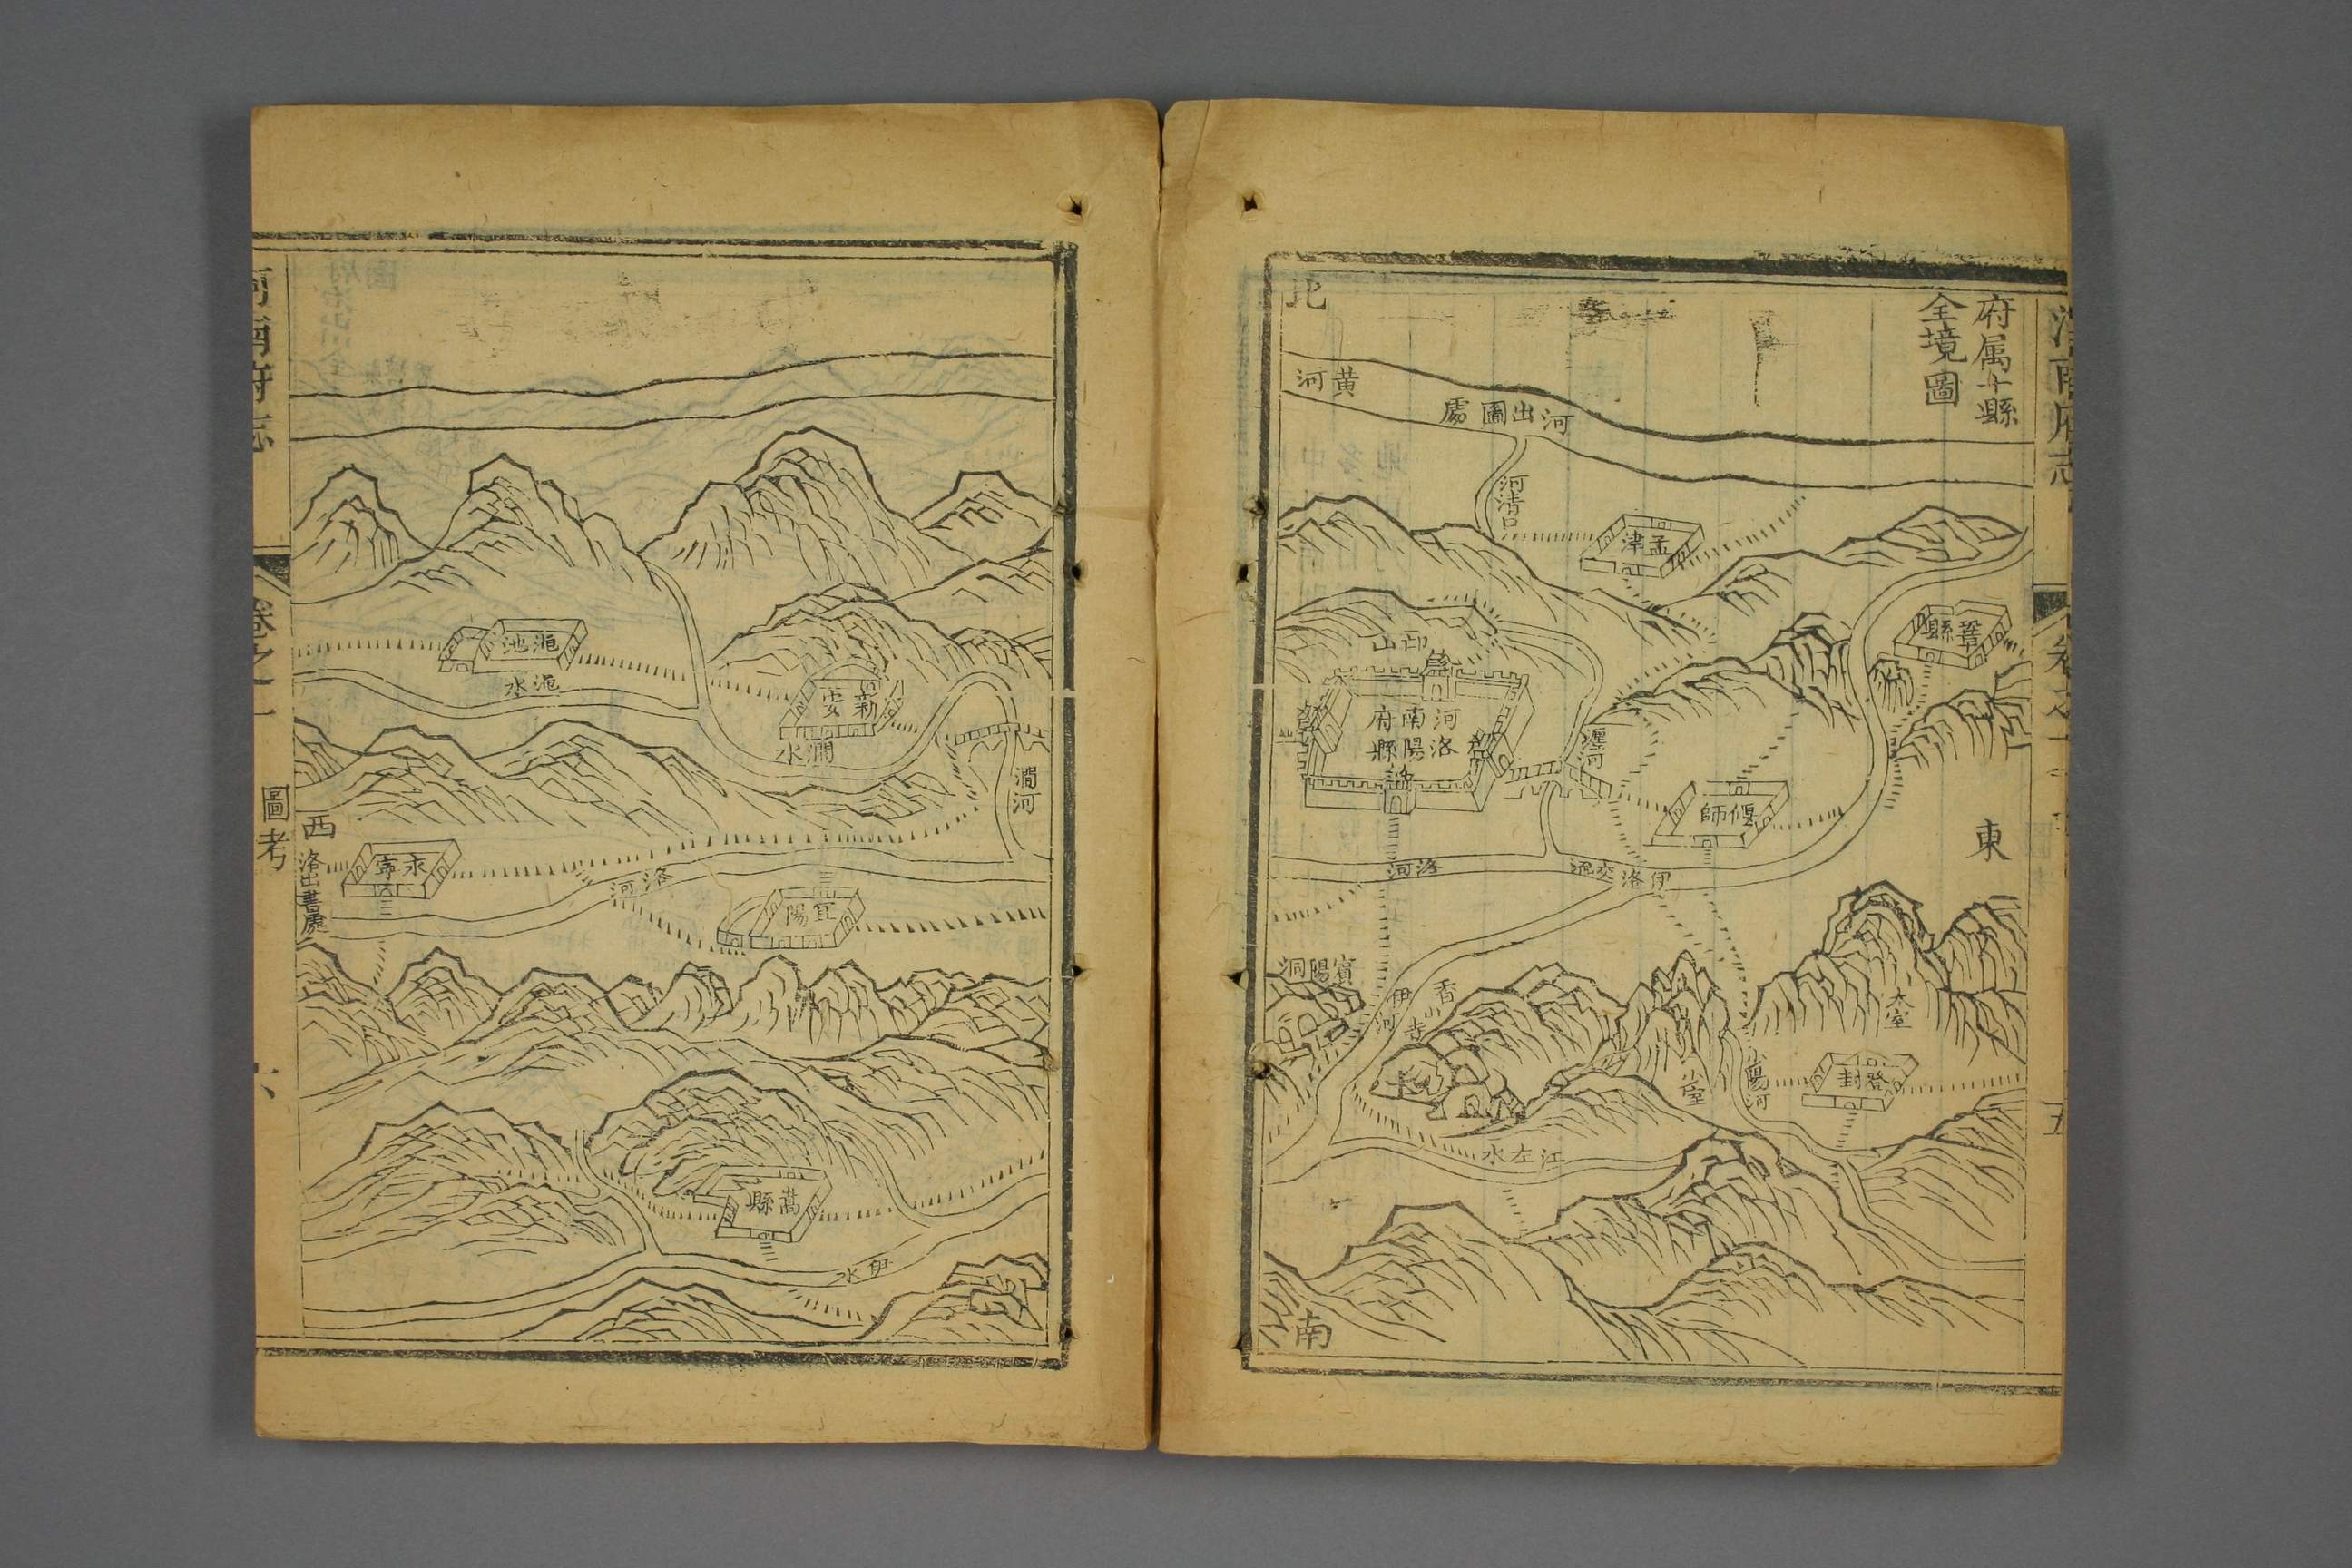 河南府志
卷之一
五
府属十縣
全境圖
北
黄河
河出圖處
河清口
孟津
鞏縣
邙山
河南府
洛陽縣
瀍河
偃師
東
洛河
伊洛交流
賓陽洞
伊河
香山寺
太室
少室
陽河
登封
江左水
南
澠池
澠水
新安
澗水
澗河
西
洛出書處
永寧
洛河
宜陽
嵩縣
伊水
河南府志
卷之一
圖考
六